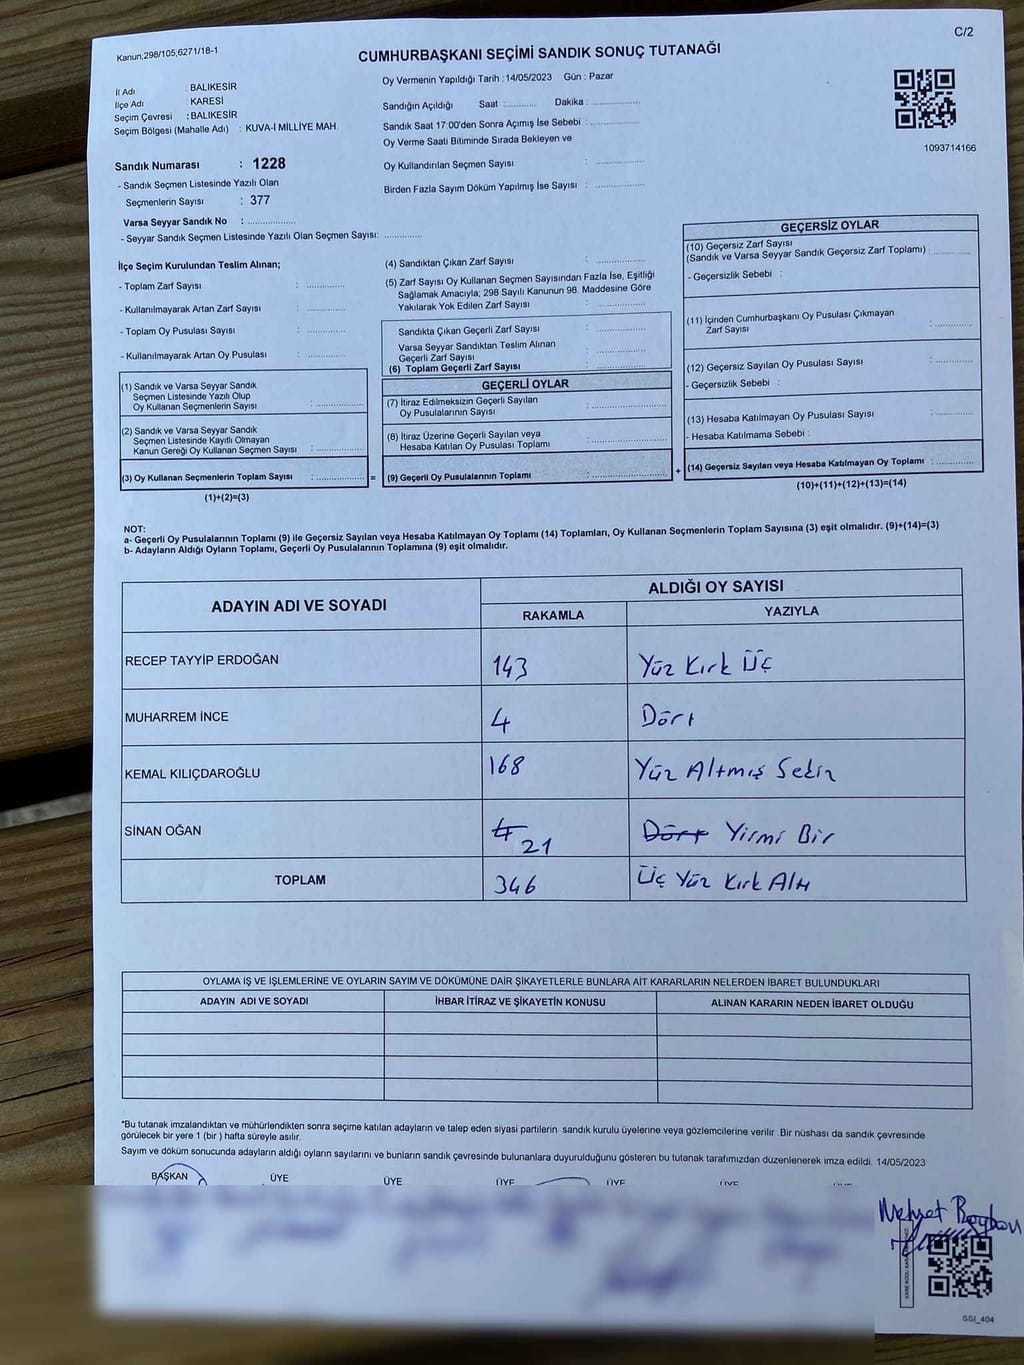 Kanun,298/105,6271/18-1
C/2
CUMHURBAŞKANI SEÇİMİ SANDIK SONUÇ TUTANAĞI
İl Adı : BALIKESİR
İlçe Adı : KARESİ
Seçim Çevresi : BALIKESİR
Seçim Bölgesi (Mahalle Adı) : KUVA-İ MİLLİYE MAH.
Sandık Numarası : 1228
- Sandık Seçmen Listesinde Yazılı Olan
Seçmenlerin Sayısı : 377
Varsa Seyyar Sandık No : ................
- Seyyar Sandık Seçmen Listesinde Yazılı Olan Seçmen Sayısı: ............
Oy Vermenin Yapıldığı Tarih : 14/05/2023 Gün : Pazar
Sandığın Açıldığı Saat :.......... Dakika : ................
Sandık Saat 17:00'den Sonra Açımış İse Sebebi : ................
Oy Verme Saati Bitiminde Sırada Bekleyen ve
Oy Kullandırılan Seçmen Sayısı : ................
Birden Fazla Sayım Döküm Yapılmış İse Sayısı : ................
1093714166
İlçe Seçim Kurulundan Teslim Alınan;
- Toplam Zarf Sayısı : ............
- Kullanılmayarak Artan Zarf Sayısı : ............
- Toplam Oy Pusulası Sayısı : ............
- Kullanılmayarak Artan Oy Pusulası : ............
(1) Sandık ve Varsa Seyyar Sandık
Seçmen Listesinde Yazılı Olup
Oy Kullanan Seçmenlerin Sayısı : ................
(2) Sandık ve Varsa Seyyar Sandık
Seçmen Listesinde Kayıtlı Olmayan
Kanun Gereği Oy Kullanan Seçmen Sayısı : ................
(3) Oy Kullanan Seçmenlerin Toplam Sayısı : ................ =
(1)+(2)=(3)
(4) Sandıktan Çıkan Zarf Sayısı : ................
(5) Zarf Sayısı Oy Kullanan Seçmen Sayısından Fazla İse, Eşitliği
Sağlamak Amacıyla; 298 Sayılı Kanunun 98. Maddesine Göre
Yakılarak Yok Edilen Zarf Sayısı : ................
Sandıkta Çıkan Geçerli Zarf Sayısı : ................
Varsa Seyyar Sandıktan Teslim Alınan
Geçerli Zarf Sayısı : ................
(6) Toplam Geçerli Zarf Sayısı : ................
GEÇERLİ OYLAR
(7) İtiraz Edilmeksizin Geçerli Sayılan
Oy Pusulalarının Sayısı : ................
(8) İtiraz Üzerine Geçerli Sayılan veya
Hesaba Katılan Oy Pusulası Toplamı : ................
(9) Geçerli Oy Pusulalarının Toplamı : ................ +
GEÇERSİZ OYLAR
(10) Geçersiz Zarf Sayısı
(Sandık ve Varsa Seyyar Sandık Geçersiz Zarf Toplamı) : ............
- Geçersizlik Sebebi :
(11) İçinden Cumhurbaşkanı Oy Pusulası Çıkmayan
Zarf Sayısı : ............
(12) Geçersiz Sayılan Oy Pusulası Sayısı : ............
- Geçersizlik Sebebi :
(13) Hesaba Katılmayan Oy Pusulası Sayısı : ............
- Hesaba Katılmama Sebebi :
(14) Geçersiz Sayılan veya Hesaba Katılmayan Oy Toplamı : ............
(10)+(11)+(12)+(13)=(14)
NOT:
a- Geçerli Oy Pusulalarının Toplamı (9) ile Geçersiz Sayılan veya Hesaba Katılmayan Oy Toplamı (14) Toplamları, Oy Kullanan Seçmenlerin Toplam Sayısına (3) eşit olmalıdır. (9)+(14)=(3)
b- Adayların Aldığı Oyların Toplamı, Geçerli Oy Pusulalarının Toplamına (9) eşit olmalıdır.
ADAYIN ADI VE SOYADI ALDIĞI OY SAYISI
RAKAMLA YAZIYLA
RECEP TAYYİP ERDOĞAN 143 Yüz Kırk Üç
MUHARREM İNCE 4 Dört
KEMAL KILIÇDAROĞLU 168 Yüz Altmış Sekiz
SİNAN OĞAN 4 21 Dört Yirmi Bir
TOPLAM 346 Üç Yüz Kırk Altı
OYLAMA İŞ VE İŞLEMLERİNE VE OYLARIN SAYIM VE DÖKÜMÜNE DAİR ŞİKAYETLERLE BUNLARA AİT KARARLARIN NELERDEN İBARET BULUNDUKLARI
ADAYIN ADI VE SOYADI İHBAR İTİRAZ VE ŞİKAYETİN KONUSU ALINAN KARARIN NEDEN İBARET OLDUĞU
*Bu tutanak imzalandıktan ve mühürlendikten sonra seçime katılan adayların ve talep eden siyasi partilerin sandık kurulu üyelerine veya gözlemcilerine verilir .Bir nüshası da sandık çevresinde
görülecek bir yere 1 (bir ) hafta süreyle asılır.
Sayım ve döküm sonucunda adayların aldığı oyların sayılarını ve bunların sandık çevresinde bulunanlara duyurulduğunu gösteren bu tutanak tarafımızdan düzenlenerek imza edildi. 14/05/2023
BAŞKAN ÜYE ÜYE ÜYE ÜYE ÜYE
Mehmet
SSI_404